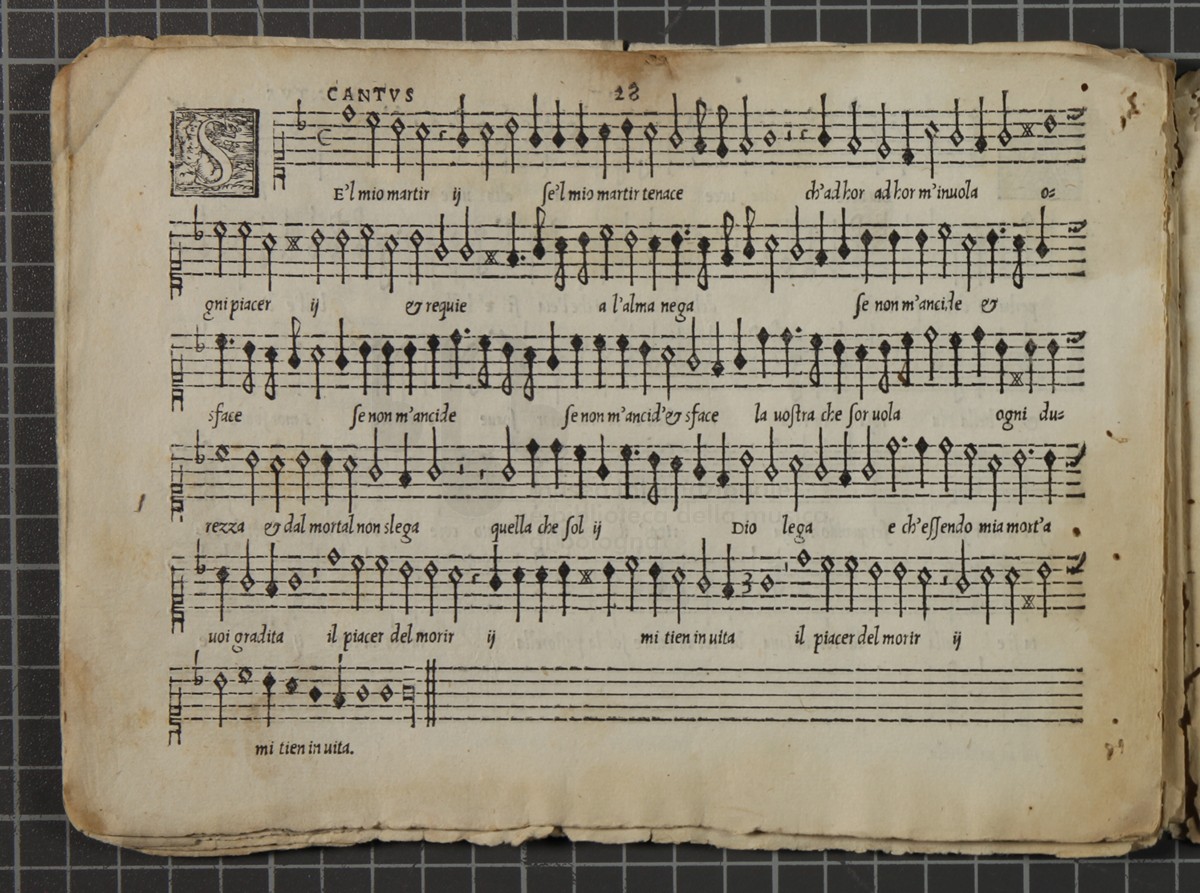 CANTVS 28
S
E'l mio martir ij se'l mio martir tenace ch'ad hor ad hor m'inuola o=
gni piacer ij & requie a l'alma nega se non m'ancide &
sface se non m'ancide se non m'ancid'& sface la uostra che sor uola ogni du=
rezza & dal mortal non slega quella che sol ij Dio lega e ch'essendo mia mort'a
3
uoi gradita il piacer del morir ij mi tien in uita il piacer del morir ij
mi tien in uita.